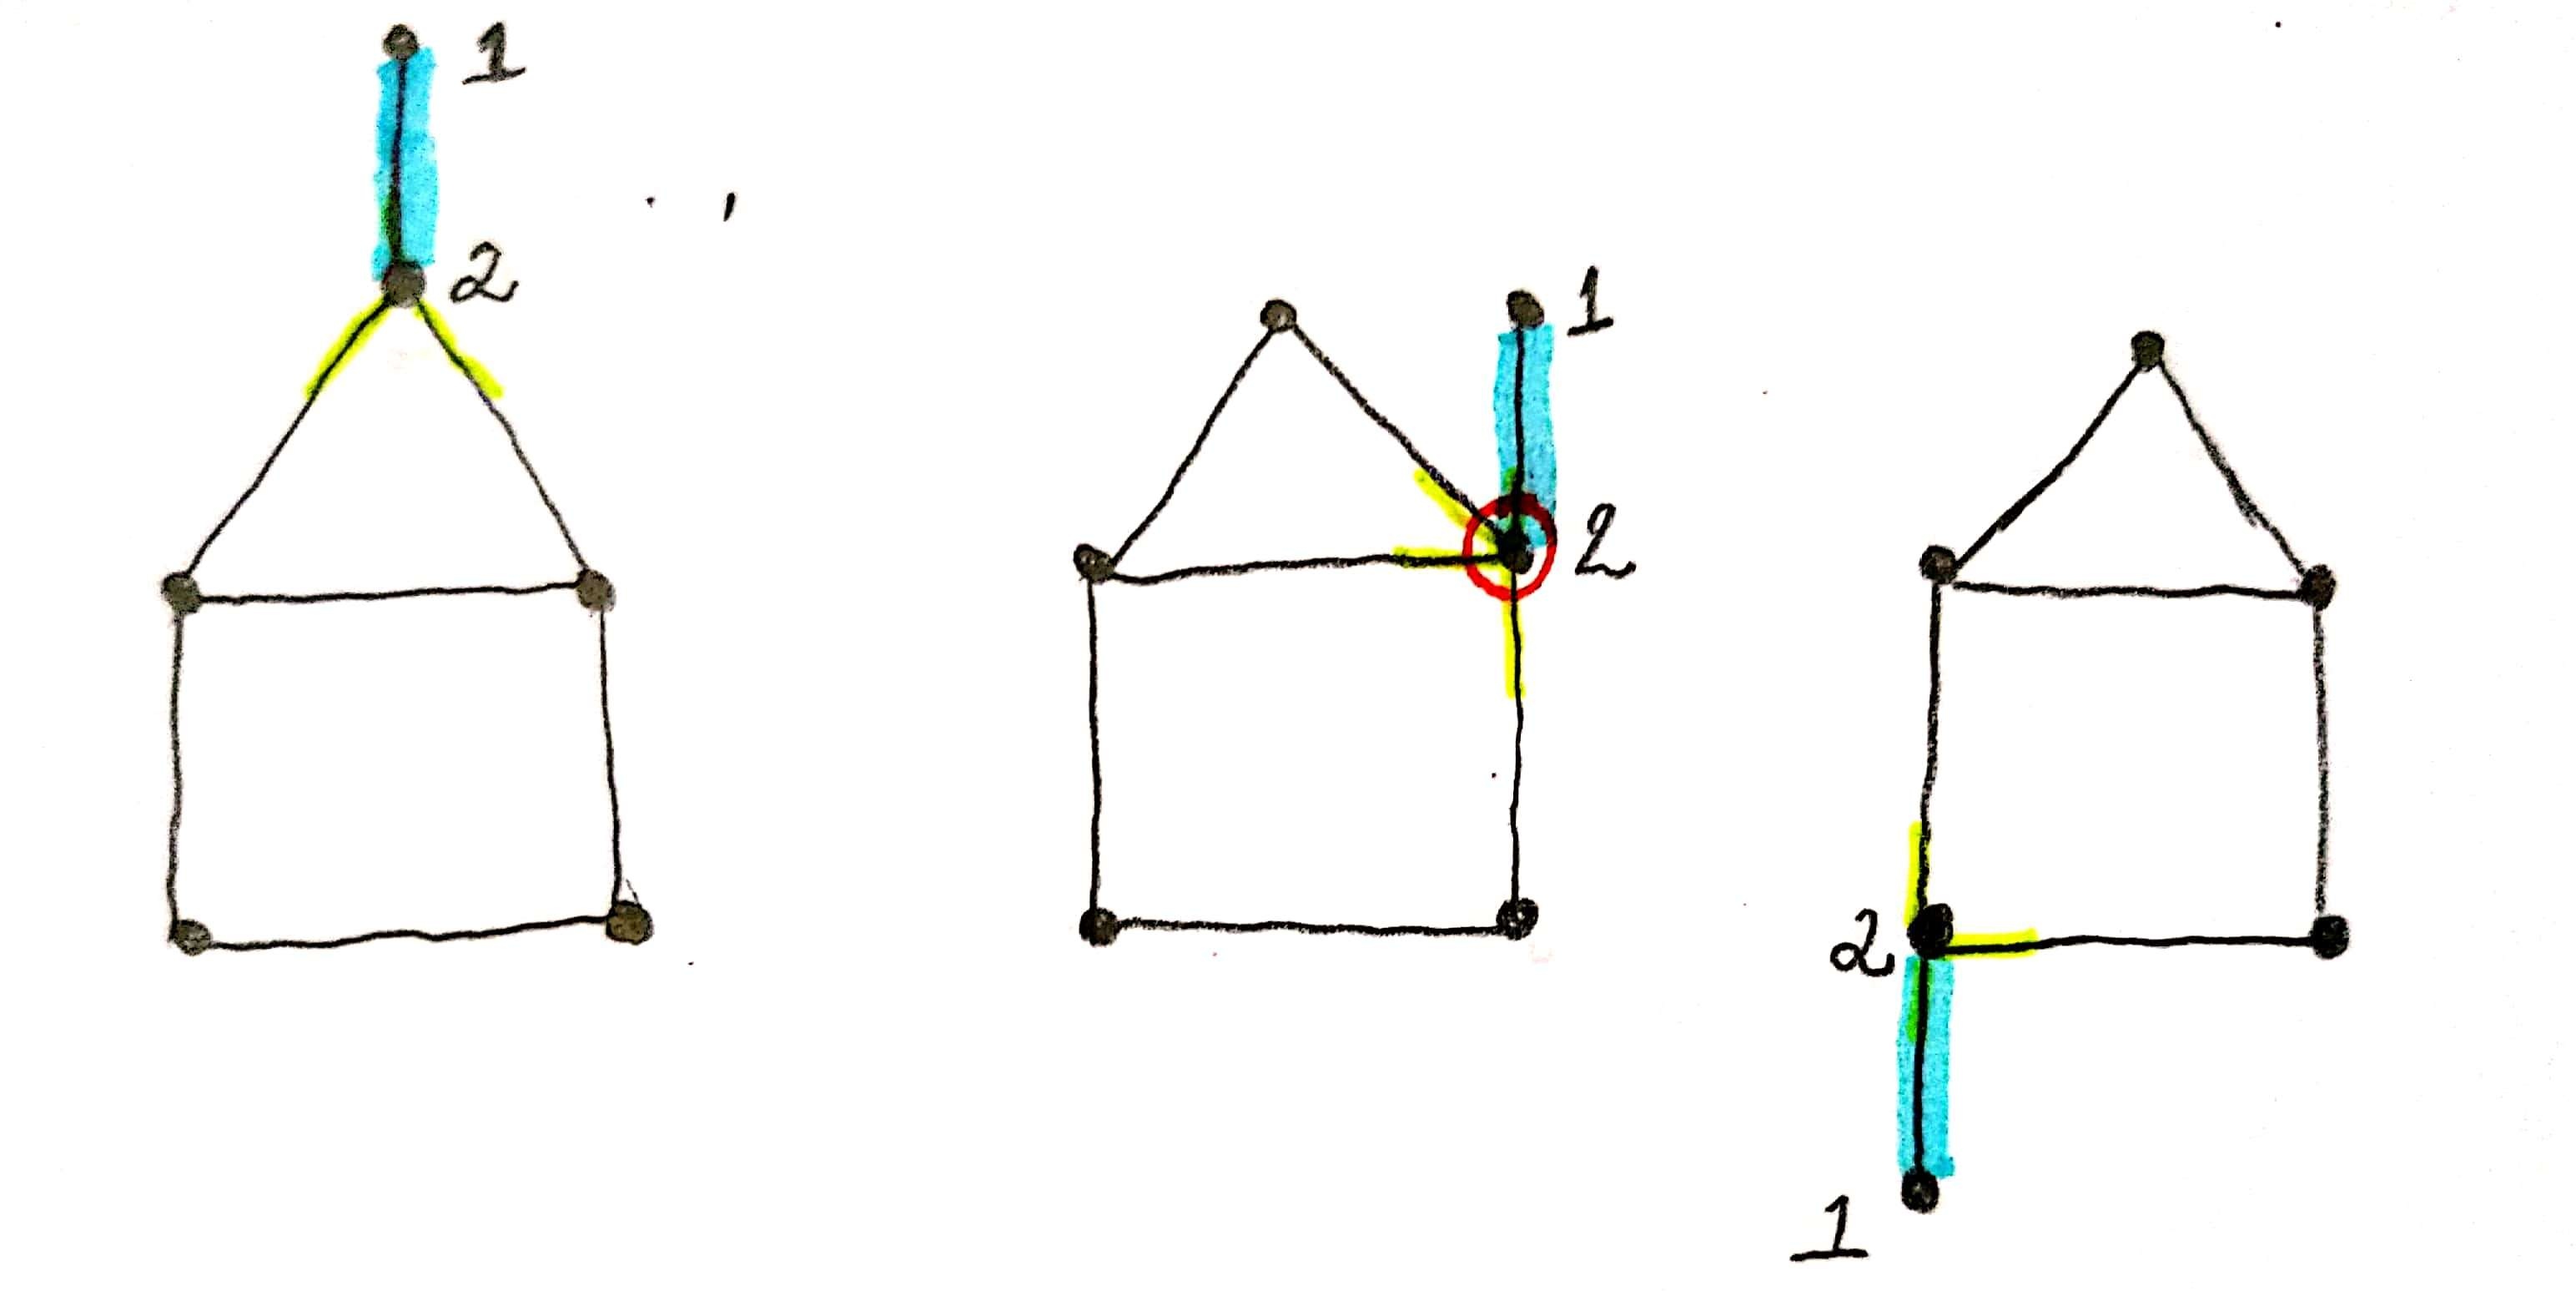 1
2
1
2
2
1